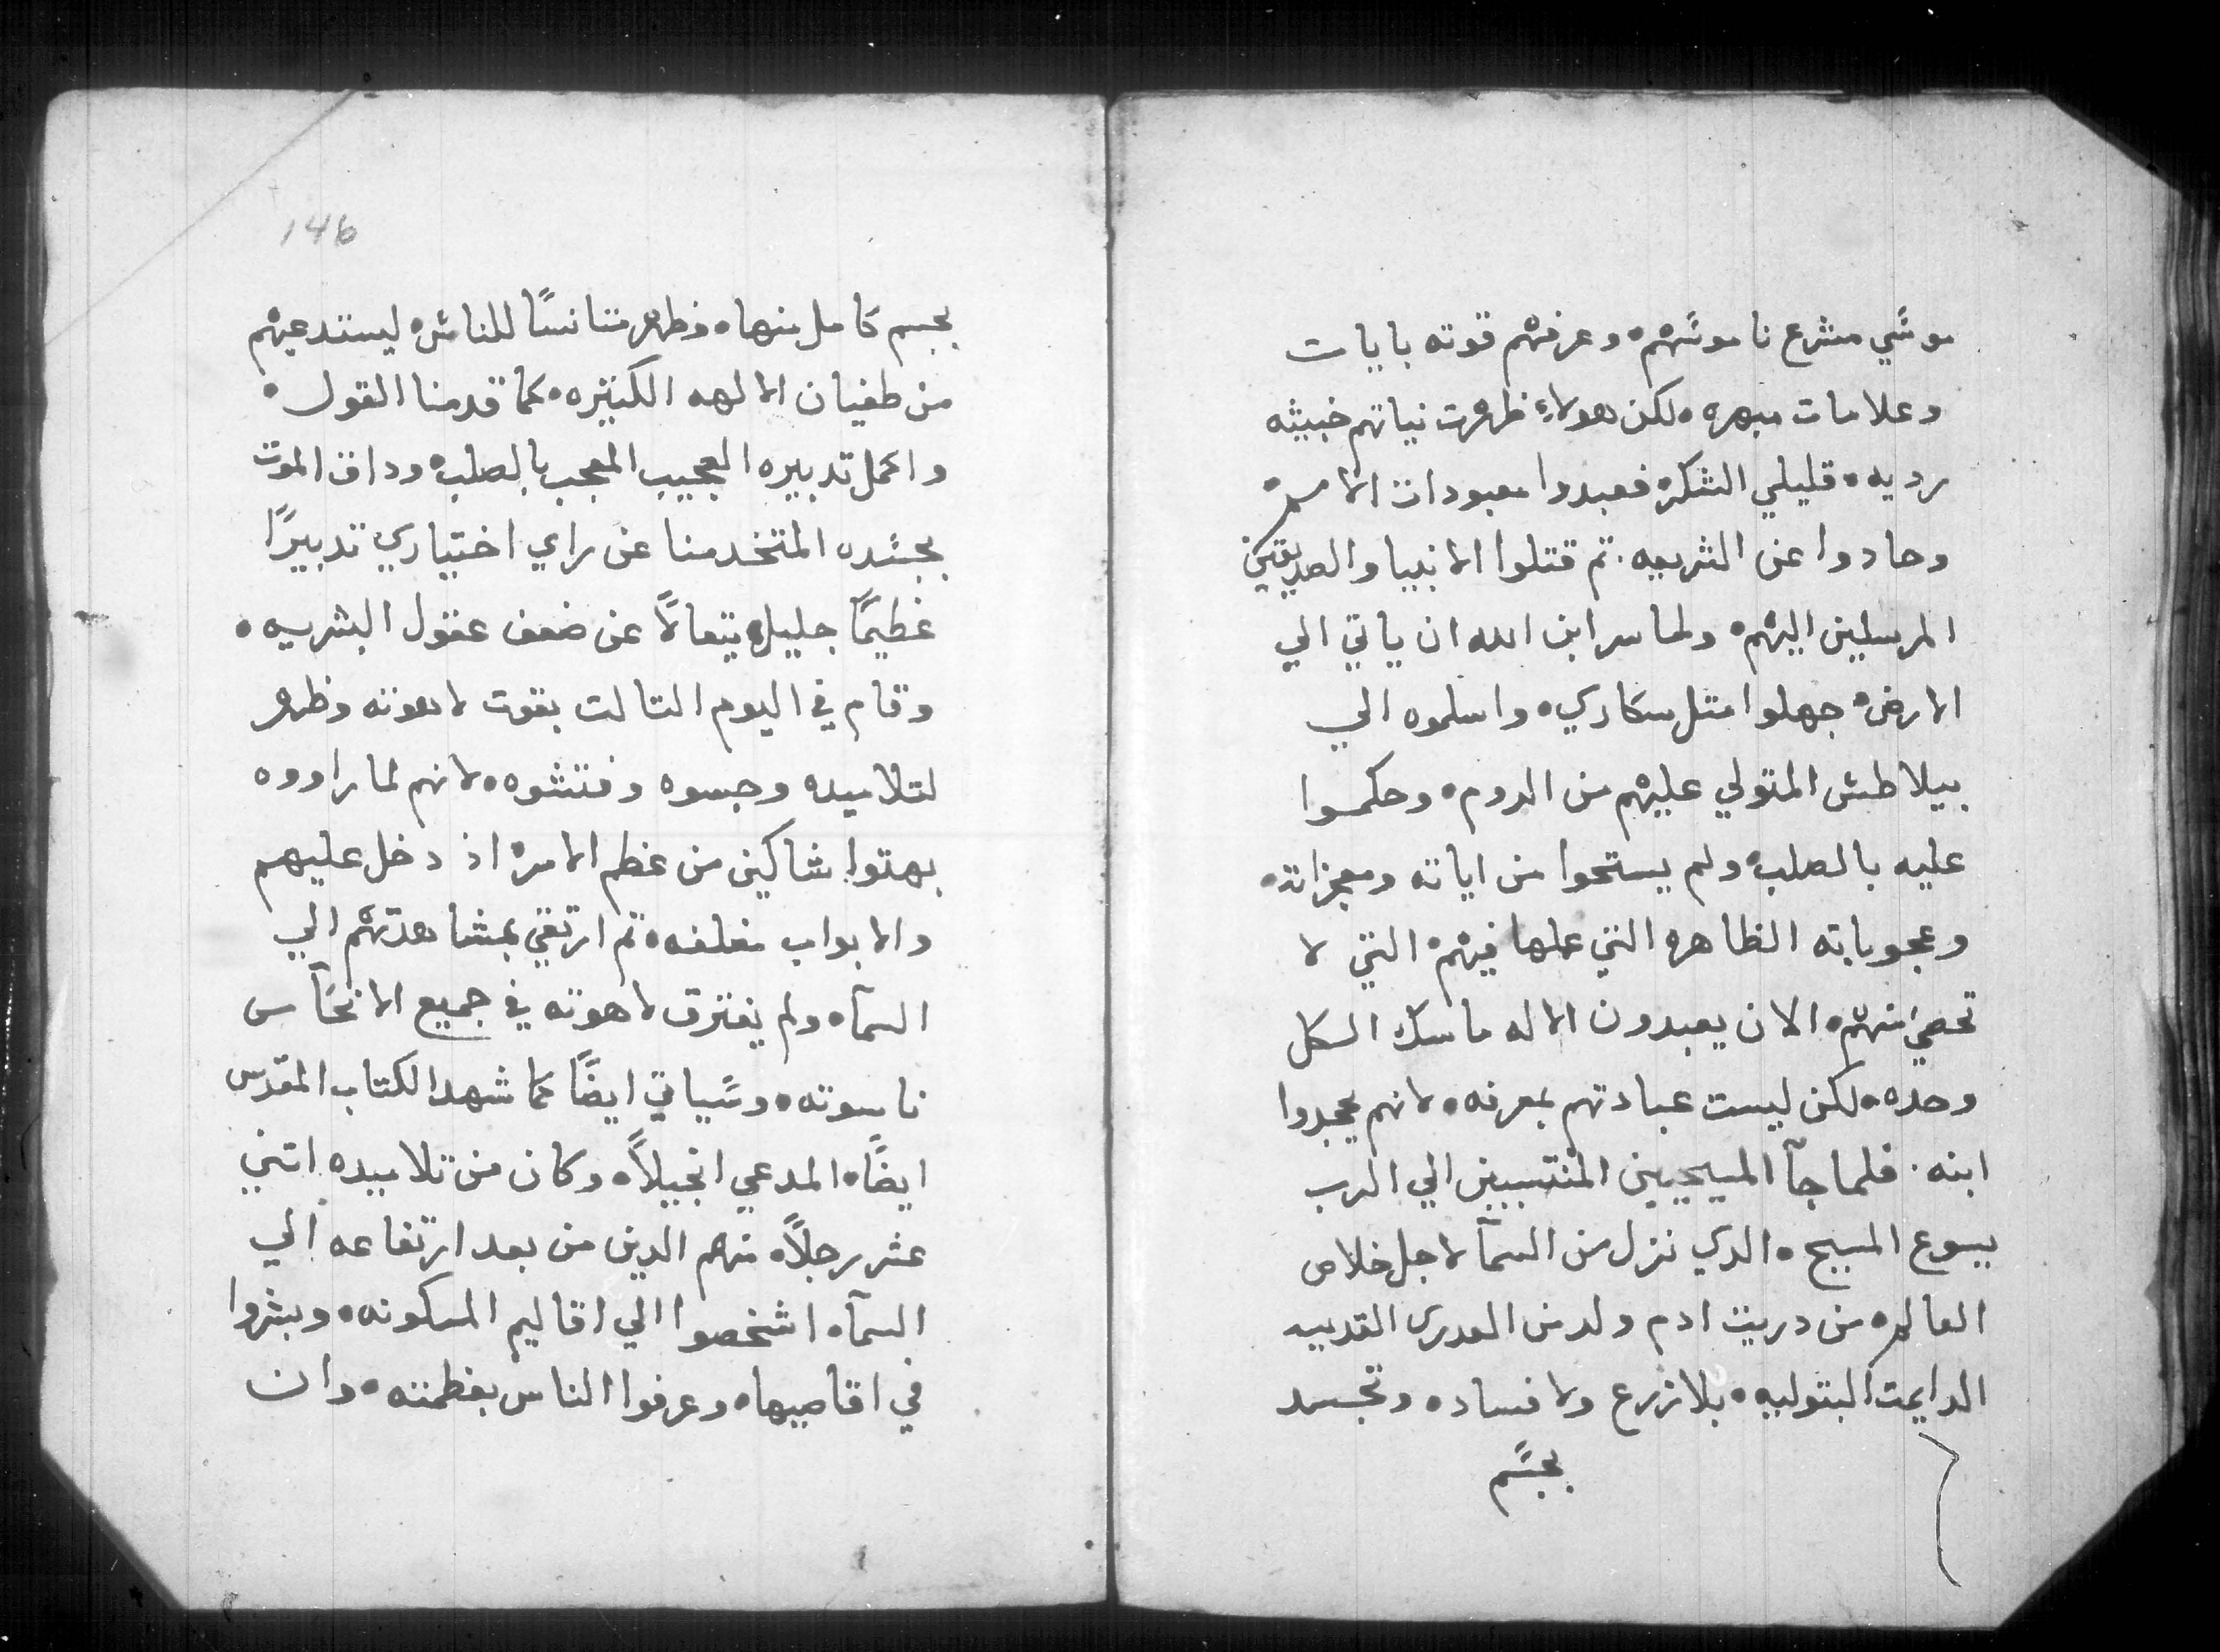 موسي مشرع ناموسهم ه وعرفهم قوته بايات
وعلامات مبهره ه لكن هولاء ظهرت نياتهم خبيثه
رديه ه قليلي الشكر ه فعبدوا معبودات الامم ه
وحادوا عن الشريعه . تم قتلوا الانبيا والصديقين
المرسلين اليهم ه ولما سر ابن الله ان ياتي الي
الارض ه جهلوا مثل سكاري ه واسلموه الي
بيلاطش المتولي عليهم من الروم ه وحكموا
عليه بالصلب ه ولم يستحوا من اياته ومعجزاته ه
وعجوباته الظاهره التي عملها فيهم ه التي لا
تحصي منهم ه الان يعبدون الاله ماسك الكل
وحده ه لكن ليست عبادتهم بمعرفه ه لانهم يجحدوا
ابنه . فلما جآ المسيحيين المنتسبين الي الرب
يسوع المسيح ه الدي نزل من السمآ لاجل خلاص
العالم ه من دريت ادم ولد من العدرى القديسه
الدايمت البتوليه ه بلا زرع ولا فساد ه وتجسد
بجسم
146
بجسم كامل منها ه وظهر متانسًا للناس ه ليستدعيهم
من طغيان الالهه الكثيره ه كما قدمنا القول ه
واكمل تدبيره العجيب المعجب بالصلب ه وداق الموت
بجسده المتخد منا عن راي اختياري تدبيرًا
عظيمًا جليلا يتعالا عن ضعف عقول البشريه ه
وقام في اليوم التالت بقوت لاهوته وظهر
لتلاميده وجسوه وفتشوه ه لانهم لما راووه
بهتوا شاكين من عظم الامر ه اذ دخل عليهم
والابواب مغلقه ه تم ارتقي بمشاهدتهم الي
السمآ ه ولم يفترق لاهوته في جميع الانحآ من
ناسوته ه وسياتي ايضًا كما شهد الكتاب المقدس
ايضًا ه المدعي انجيلاً ه وكان من تلاميده اتني
عشر رجلاً ه منهم الدين من بعد ارتفاعه الي
السمآ ه اشخصوا الي اقاليم المسكونه ه وبشروا
في اقاصيها ه وعرفوا الناس بعظمته ه وان